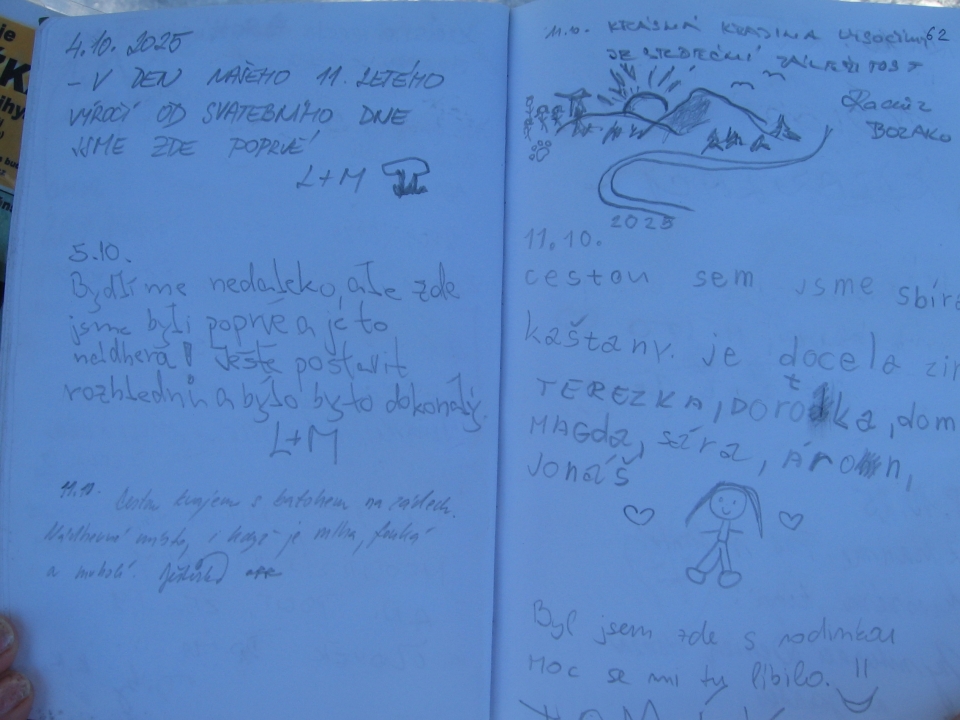 4.10.2025
- V DEN NAŠEHO 11. LETÉHO
VÝROČÍ OD SVATEBNÍHO DNE
JSME ZDE POPRVÉ
L+M
5.10.
Bydlíme nedaleko, ale zde
jsme byli poprvé a je to
nádhera! Ještě postavit
rozhlednu a bylo by to dokonalý.
L+M
11.10. Cestou krajem s batohem na zádech.
Nádherné místo, i když je mlha, fouká
a mrholí.
62
11.10. KRÁSNÁ KRAJINA VYSOČINY
JE SRDEČNÍ ZÁLEŽITOST
2025
11.10.
cestou sem jsme sbíra
kaštany. je docela zim
TEREZKA, Dorotka, dom
MAGda, sára, Áron,
Jonáš
Byl jsem zde s rodinkou
Moc se mi tu líbilo. !!